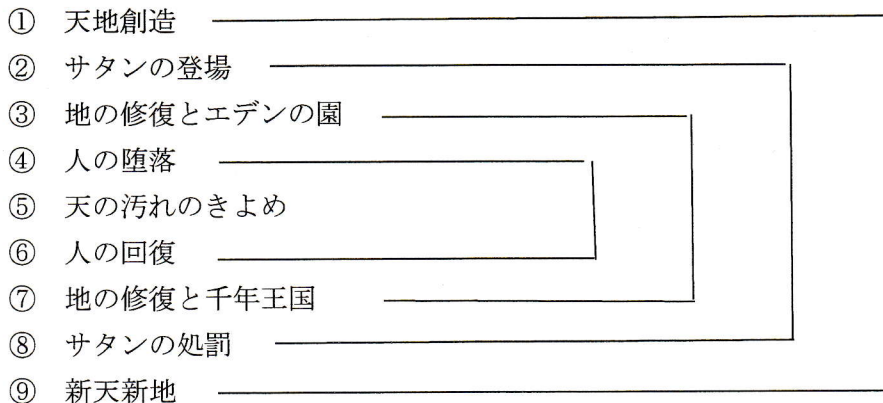 ① 天地創造
② サタンの登場
③ 地の修復とエデンの園
④ 人の堕落
⑤ 天の汚れのきよめ
⑥ 人の回復
⑦ 地の修復と千年王国
⑧ サタンの処罰
⑨ 新天新地